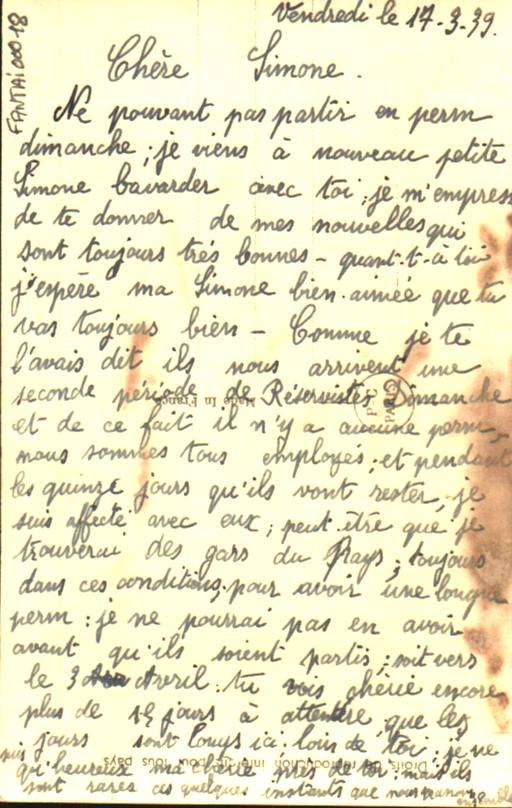 FANTAI 000-18
Vendredi le 17-3.39.
Chère Simone.
Ne pouvant pas partir en perm
dimanche ; je viens à nouveau petite
Simone bavarder avec toi ; je m'empres
de te donner de mes nouvelles qui
sont toujours très bonnes - quant-t-à toi
j'espère ma Simone bien-aimée que tu
vas toujours bien - Comme je te
l'avais dit ils nous arrivent une
seconde période de Réservistes Dimanche
et de ce fait il n'y a aucune perm,
nous sommes tous employés ; et pendant
les quinze jours qu'ils vont rester, je
suis affecté avec eux ; peut-être que je
trouverai des gars du Pays ; toujours
dans ces conditions, pour avoir une longue
perm : je ne pourrai pas en avoir
avant qu'ils soient partis ; soit vers
le 3 Avril. tu vois chérie encore
plus de 15 jours à attendre que les
jours sont longs ici loin de toi ; je ne
suis qu'heureux ma chérie près de toi mais ils
sont rares ces quelques instants que nous
ensemble
Made in France
PARIS
Droits de reproduction interdits pour tous pays